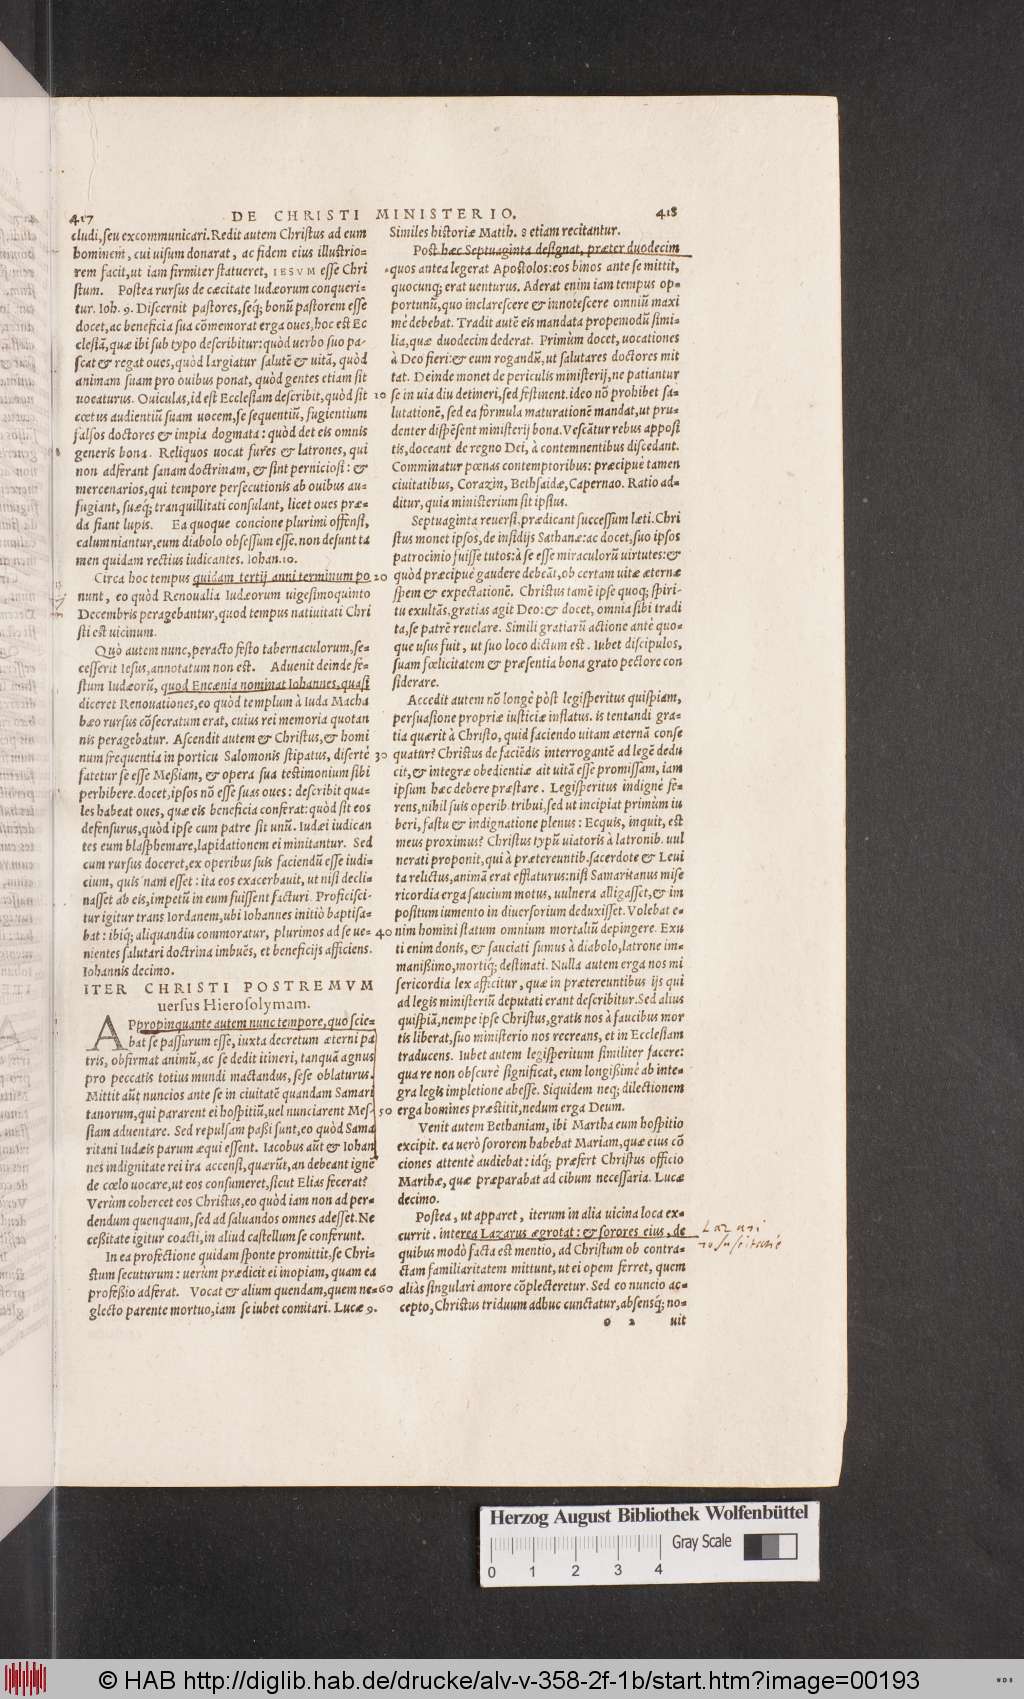 417 DE CHRISTI MINISTERIO. 418
cludi, seu excommunicari. Redit autem Christus ad eum
hominem, cui uisum donarat, ac fidem eius illustrio=
rem facit, ut iam firmiter statueret, IESVM esse Chri
stum. Postea rursus de cæcitate Iudæorum conqueri=
tur. Ioh. 9. Discernit pastores, seq́; bonũ pastorem esse
docet, ac beneficia sua cõmemorat erga oues, hoc est Ec
clesiã, quæ ibi sub typo describitur: quòd uerbo suo pa=
scat & regat oues, quòd largiatur salutẽ & uitã, quòd
animam suam pro ouibus ponat, quòd gentes etiam sit
uocaturus. Ouiculas, id est Ecclesiam describit, quòd sit
cœtus audientiũ suam uocem, se sequentiũ, fugientium
falsos doctores & impia dogmata: quòd det eis omnis
generis bona. Reliquos uocat fures & latrones, qui
non adferant sanam doctrinam, & sint perniciosi: &
mercenarios, qui tempore persecutionis ab ouibus au=
fugiant, suæq́; tranquillitati consulant, licet oues præ=
da fiant lupis. Ea quoque concione plurimi offensi,
calumniantur, eum diabolo obsessum esse. non desunt ta
men quidam rectius iudicantes. Iohan. 10.
Circa hoc tempus quidam tertij anni terminum po
nunt, eo quòd Renoualia Iudæorum uigesimoquinto
Decembris peragebantur, quod tempus natiuitati Chri
sti est uicinum.
Quò autem nunc, peracto festo tabernaculorum, se=
cesserit Iesus, annotatum non est. Aduenit deinde fe=
stum Iudæorũ, quod Encænia nominat Iohannes, quasi
diceret Renouationes, eo quòd templum à Iuda Macha
bæo rursus cõsecratum erat, cuius rei memoria quotan
nis peragebatur. Ascendit autem & Christus, & homi
num frequentia in porticu Salomonis stipatus, disertè
fatetur se esse Meßiam, & opera sua testimonium sibi
perhibere. docet, ipsos nõ esse suas oues: describit qua=
les habeat oues, quæ eis beneficia conferat: quòd sit eos
defensurus, quòd ipse cum patre sit unũ. Iudæi iudican
tes eum blasphemare, lapidationem ei minitantur. Sed
cum rursus doceret, ex operibus suis faciendũ esse iudi=
cium, quis nam esset: ita eos exacerbauit, ut nisi decli=
nasset ab eis, impetũ in eum fuissent facturi. Proficisci=
tur igitur trans Iordanem, ubi Iohannes initiò baptisa=
bat: ibiq́; aliquandiu commoratur, plurimos ad se ue=
nientes salutari doctrina imbuẽs, et beneficijs afficiens.
Iohannis decimo.
ITER CHRISTI POSTREMVM
uersus Hierosolymam.
APpropinquante autem nunc tempore, quo scie=
bat se passurum esse, iuxta decretum æterni pa
tris, obfirmat animũ, ac se dedit itineri, tanquã agnus
pro peccatis totius mundi mactandus, sese oblaturus.
Mittit aũt nuncios ante se in ciuitatẽ quandam Samari
tanorum, qui pararent ei hospitiũ, uel nunciarent Mes=
siam aduentare. Sed repulsam paßi sunt, eo quòd Sama
ritani Iudæis parum æqui essent. Iacobus aũt & Iohan
nes indignitate rei ira accensi, quærũt, an debeant ignẽ
de cœlo uocare, ut eos consumeret, sicut Elias fecerat?
Verùm cohercet eos Christus, eo quòd iam non ad per=
dendum quenquam, sed ad saluandos omnes adesset. Ne
ceßitate igitur coacti, in aliud castellum se conferunt.
In ea profectione quidam sponte promittit, se Chri=
stum secuturum: uerùm prædicit ei inopiam, quam ea
profeßio adferat. Vocat & alium quendam, quem ne=
glecto parente mortuo, iam se iubet comitari. Lucæ 9.
10
20
30
40
50
60
Similes historiæ Matth. 8 etiam recitantur.
Post hæc Septuaginta designat, præter duodecim
quos antea legerat Apostolos: eos binos ante se mittit,
quocunq́; erat uenturus. Aderat enim iam tempus op=
portunũ, quo inclarescere & innotescere omniũ maxi
mè debebat. Tradit autẽ eis mandata propemodũ simi=
lia, quæ duodecim dederat. Primùm docet, uocationes
à Deo fieri: & eum rogandũ, ut salutares doctores mit
tat. Deinde monet de periculis ministerij, ne patiantur
se in uia diu detineri, sed festinent. ideo nõ prohibet sa=
lutationẽ, sed ea formula maturationẽ mandat, ut pru=
denter dispẽsent ministerij bona. Vescãtur rebus apposi
tis, doceant de regno Dei, à contemnentibus discedant.
Comminatur pœnas contemptoribus: præcipuè tamen
ciuitatibus, Corazin, Bethsaidæ, Capernao. Ratio ad=
ditur, quia ministerium sit ipsius.
Septuaginta reuersi, prædicant successum læti. Chri
stus monet ipsos, de insidijs Sathanæ: ac docet, suo ipsos
patrocinio fuisse tutos: à se esse miraculorũ uirtutes: &
quòd præcipuè gaudere debeãt, ob certam uitæ æternæ
spem & expectationẽ. Christus tamẽ ipse quoq́; spiri=
tu exultãs, gratias agit Deo: & docet, omnia sibi tradi
ta, se patrẽ reuelare. Simili gratiarũ actione antè quo=
que usus fuit, ut suo loco dictum est. Iubet discipulos,
suam fœlicitatem & præsentia bona grato pectore con
siderare.
Accedit autem nõ longè pòst legisperitus quispiam,
persuasione propriæ iusticiæ inflatus. is tentandi gra=
tia quærit à Christo, quid faciendo uitam æternã conse
quatur? Christus de faciẽdis interrogantẽ ad legẽ dedu
cit, & integræ obedientiæ ait uitã esse promissam, iam
ipsum hæc debere præstare. Legisperitus indignè fe=
rens, nihil suis operib. tribui, sed ut incipiat primùm iu
beri, fastu & indignatione plenus: Ecquis, inquit, est
meus proximus? Christus typũ uiatoris à latronib. uul
nerati proponit, qui à prætereuntib. sacerdote & Leui
ta relictus, animã erat efflaturus: nisi Samaritanus mise
ricordia erga saucium motus, uulnera alligasset, & im
positum iumento in diuersorium deduxisset. Volebat e=
nim homini statum omnium mortaliũ depingere. Exu
ti enim donis, & sauciati sumus à diabolo, latrone im=
manißimo, mortiq́; destinati. Nulla autem erga nos mi
sericordia lex afficitur, quæ in prætereuntibus ijs qui
ad legis ministeriũ deputati erant describitur. Sed alius
quispiã, nempe ipse Christus, gratis nos à faucibus mor
tis liberat, suo ministerio nos recreans, et in Ecclesiam
traducens. Iubet autem legisperitum similiter facere:
qua re non obscurè significat, eum longißimè ab inte=
gra legis impletione abesse. Siquidem neq́; dilectionem
erga homines præstitit, nedum erga Deum.
Venit autem Bethaniam, ibi Martha eum hospitio
excipit. ea uerò sororem habebat Mariam, quæ eius cõ
ciones attentè audiebat: idq́; præfert Christus officio
Marthæ, quæ præparabat ad cibum necessaria. Lucæ
decimo.
Postea, ut apparet, iterum in alia uicina loca ex=
currit. interea Lazarus ægrotat: & sorores eius, de
quibus modò facta est mentio, ad Christum ob contra=
ctam familiaritatem mittunt, ut ei opem ferret, quem
aliàs singulari amore cõplecteretur. Sed eo nuncio ac=
cepto, Christus triduum adhuc cunctatur, absensq́; no=
o 2 uit
Lazari
Herzog August Bibliothek Wolfenbüttel
0 1 2 3 4
Gray Scale
© HAB http://diglib.hab.de/drucke/alv-v-358-2f-1b/start.htm?image=00193